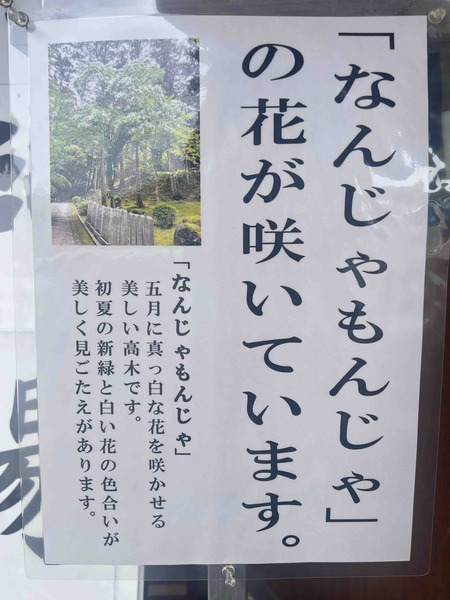 「なんじゃもんじゃ」
の花が咲いています。
「なんじゃもんじゃ」
五月に真っ白な花を咲かせる
美しい高木です。
初夏の新緑と白い花の色合いが
美しく見ごたえがあります。